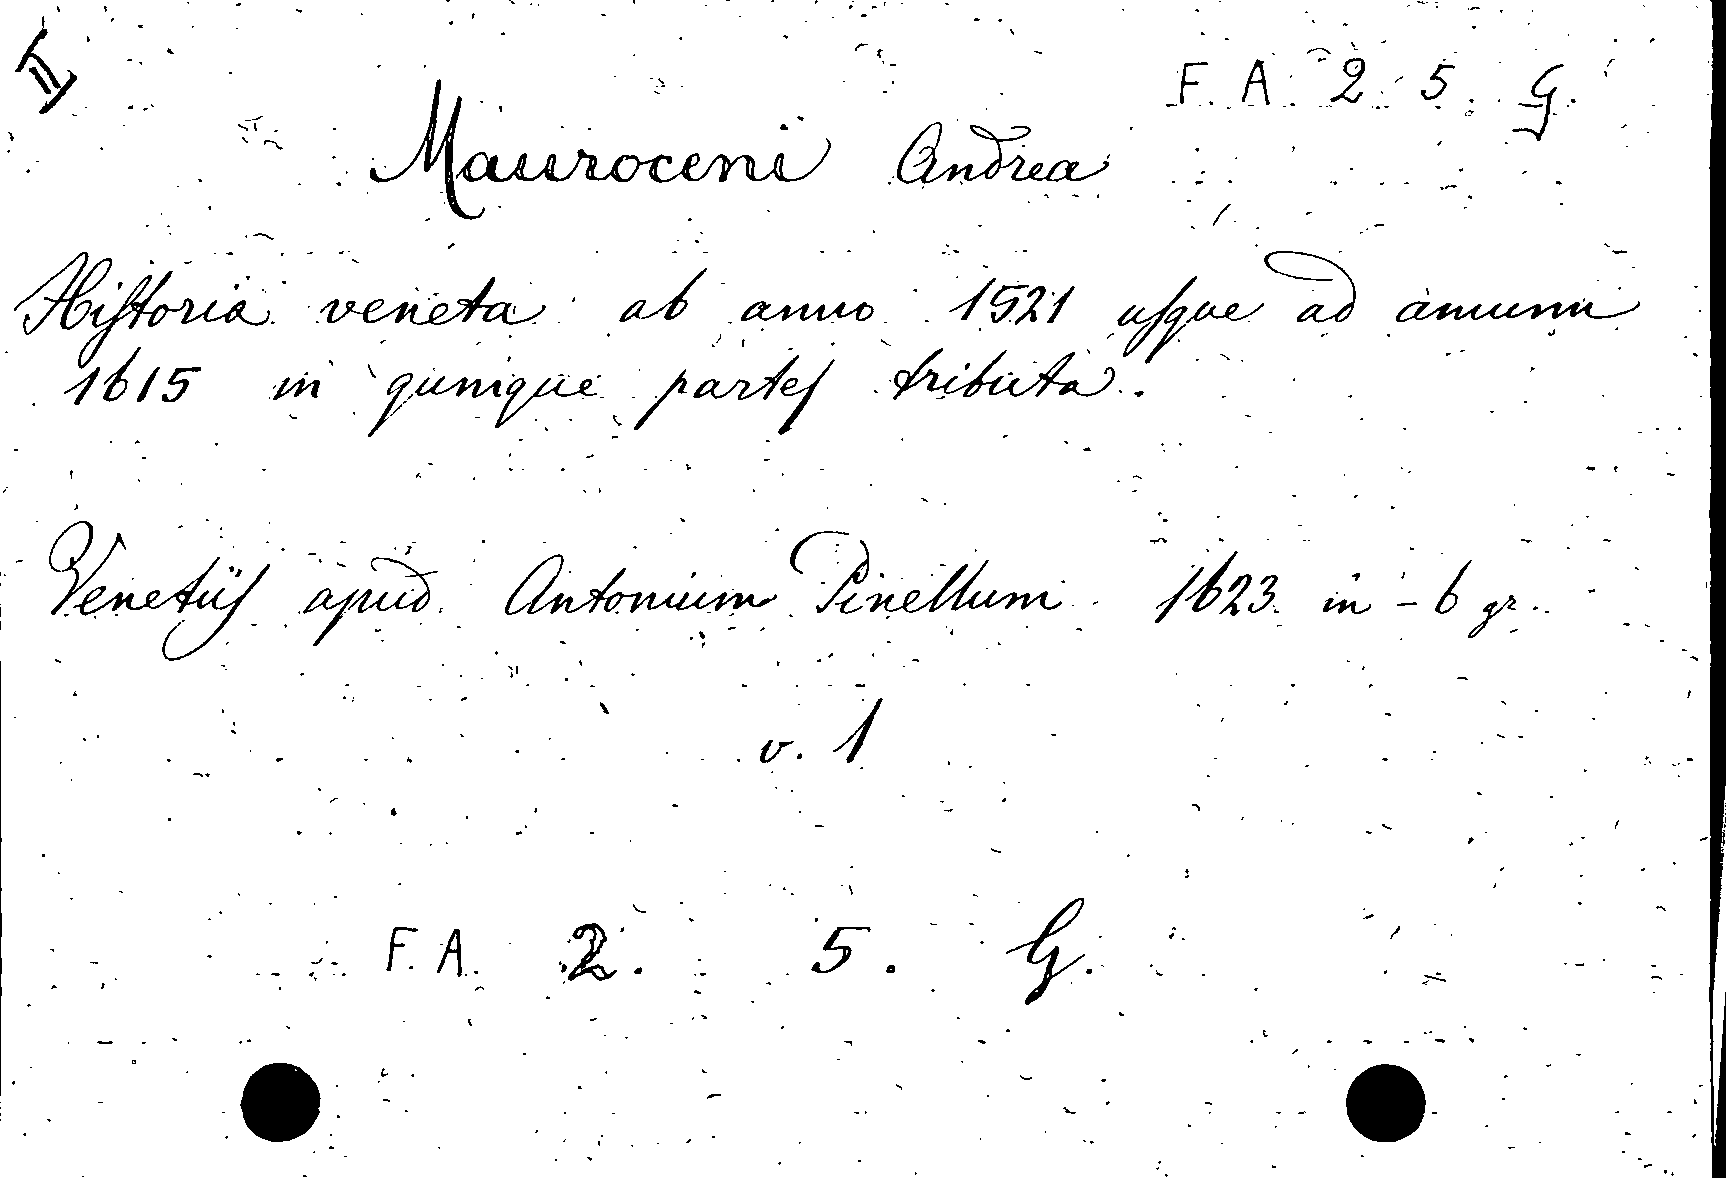 II
F. A. 2 5. G.
Mauroceni Andrea
Hiſtoria veneta ab anno 1521 uſque ad annum
1615 in qunique parteſ tributa.
Venetiiſ apud Antonium Pinellum 1623 in - 6 gr.
v. 1
F. A. 2. 5. G.